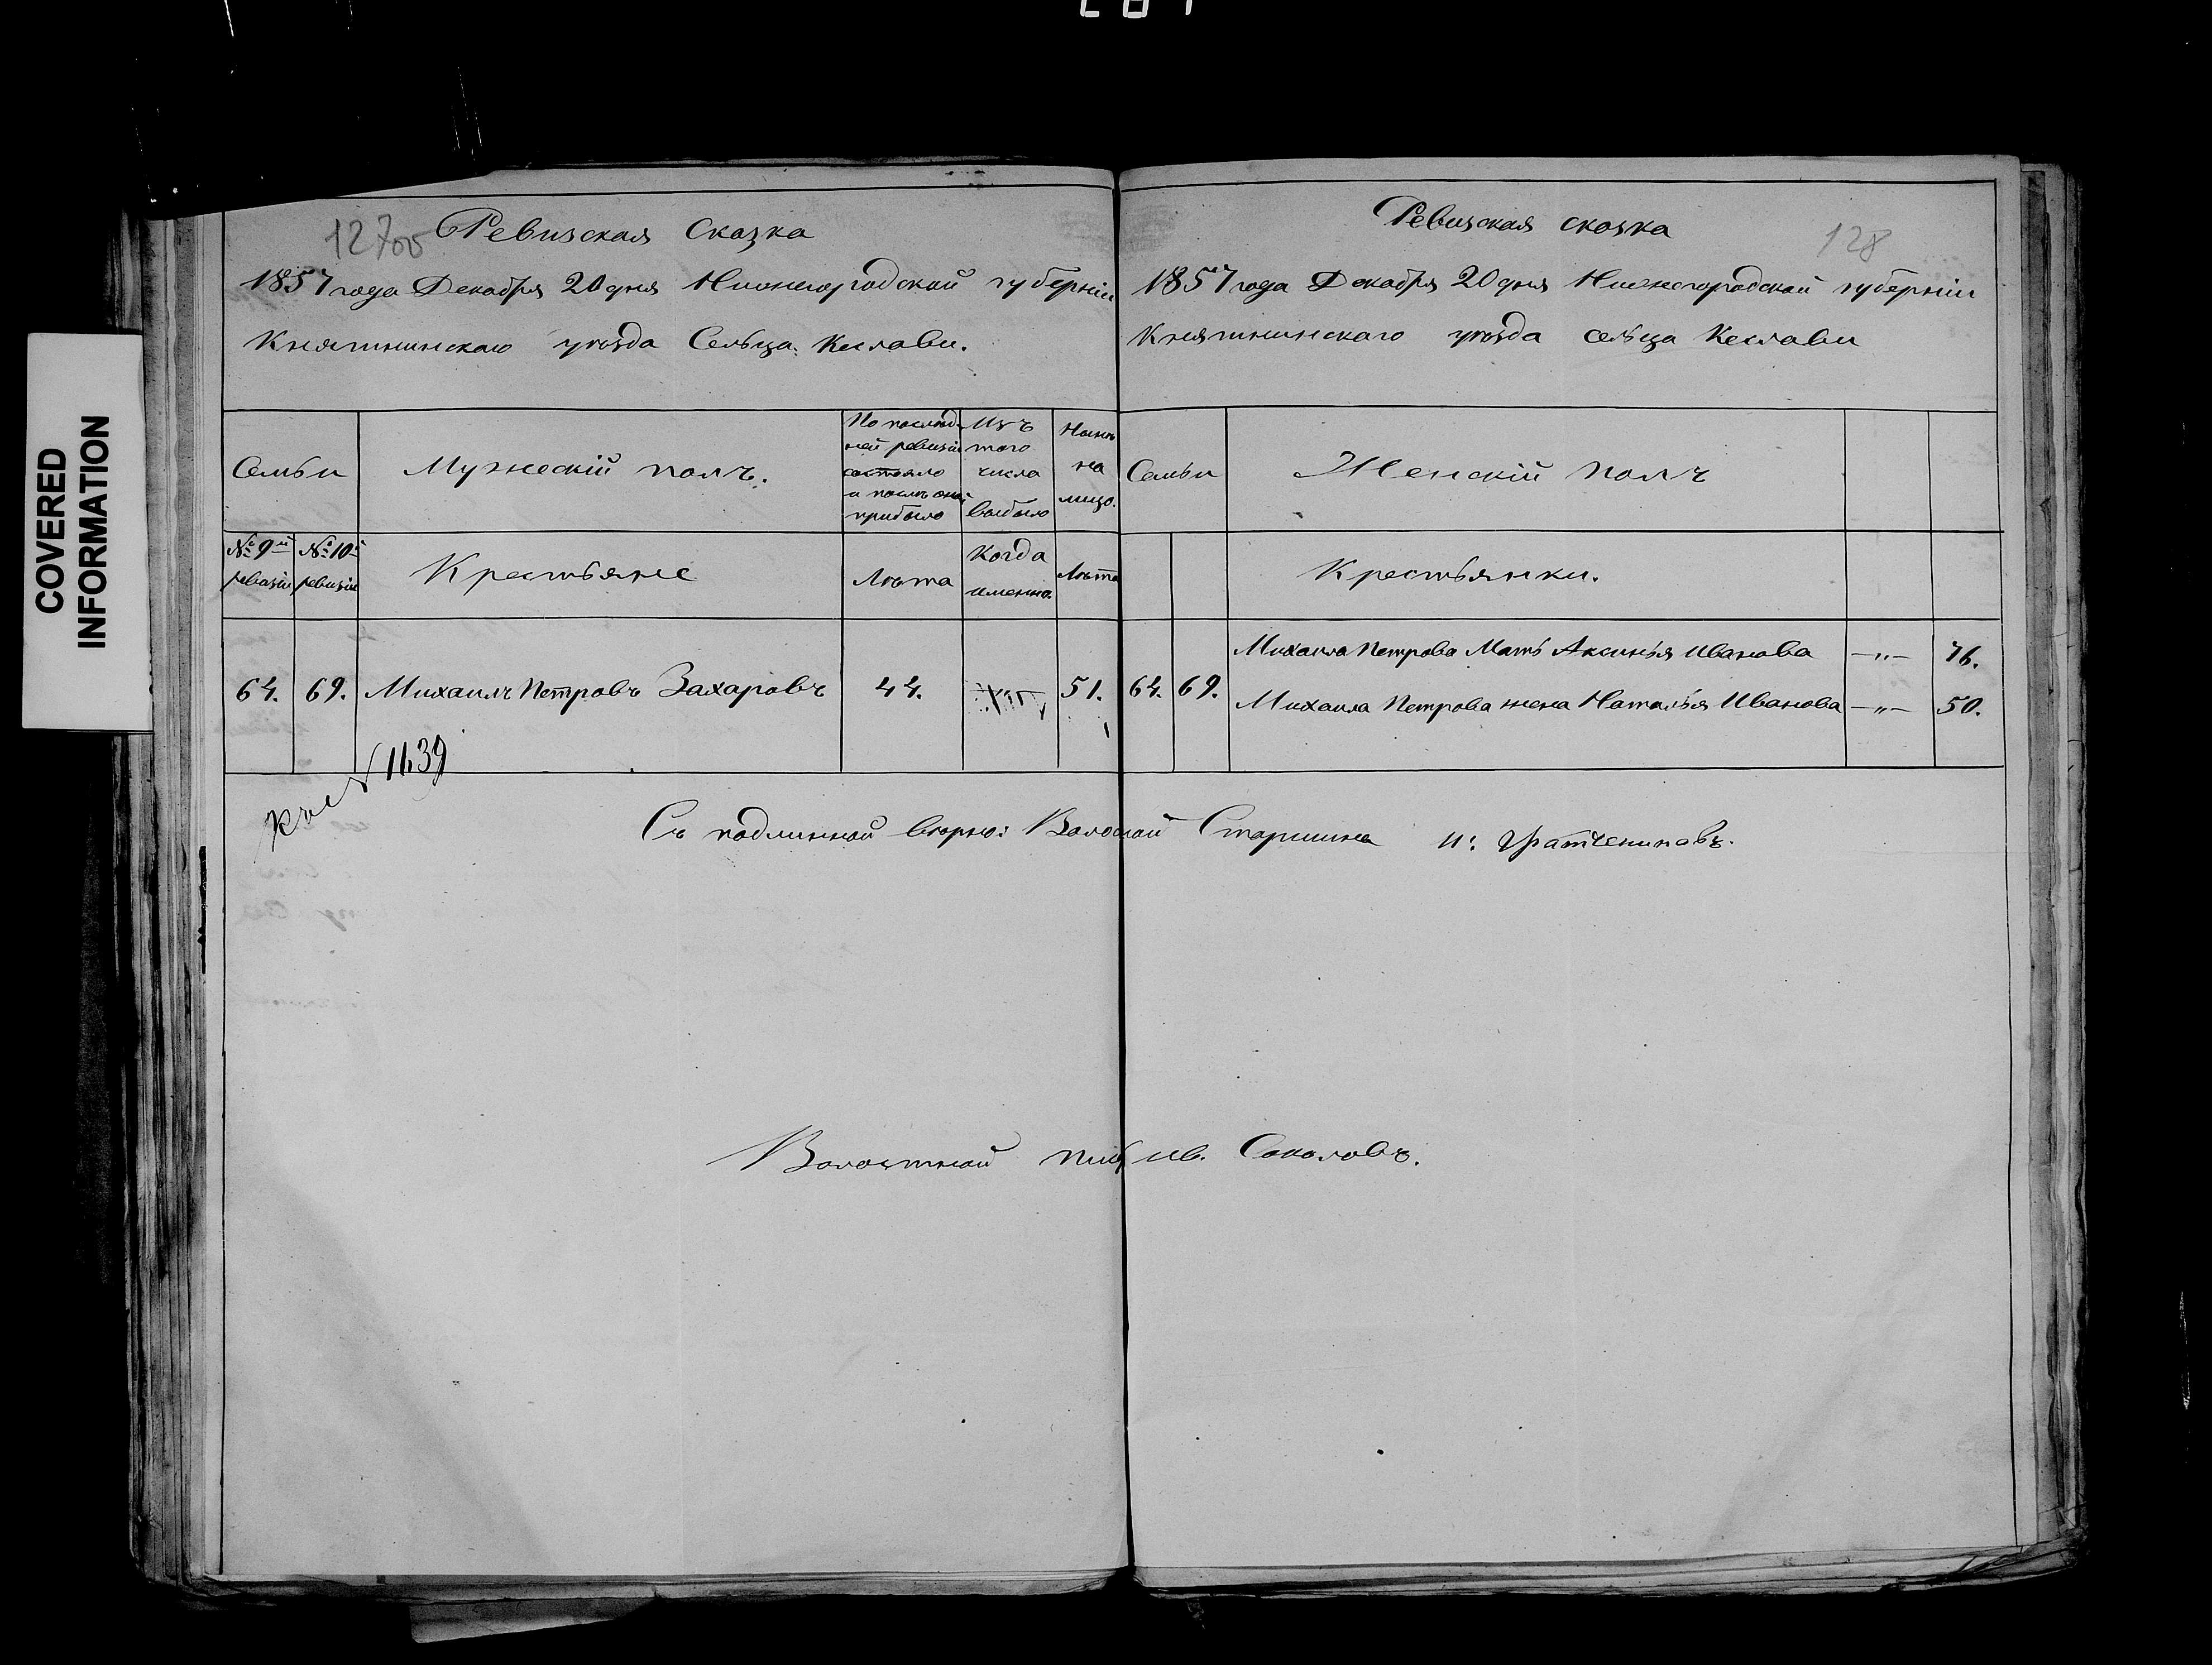 COVERED
INFORMATION
127об
Ревизская Сказка
1857 года Декабря 20 дня Нижегородской губерніи
Княгининскаго уѣзда Сельца Кеслави.
Семьи
Мужескій полъ.
По послѣд-
ней ревизіи
состояло
и послѣ оной
прибыло
Изъ
того
числа
выбыло
Нынѣ
на
лицо.
№ 9й
ревизіи
№ 10й
ревизіи
Крестьяне
Лѣта
Когда
именно
Лѣта
64. 69. Михаилъ Петровъ Захаровъ 44. 51.
№ 1139
128
Ревизская сказка
1857 года Декабря 20 дня Нижегородской губерніи
Княгининскаго уѣзда сельца Кеслави
Семьи
Женскій полъ
Крестьянки.
64. 69.
Михаила Петрова Мать Аксинья Иванова —"— 76.
Михаила Петрова жена Наталья Иванова —"— 50.
Съ подлинной вѣрно: Волосной Старшина И.
Волостной Пис Ив. Соколовъ.